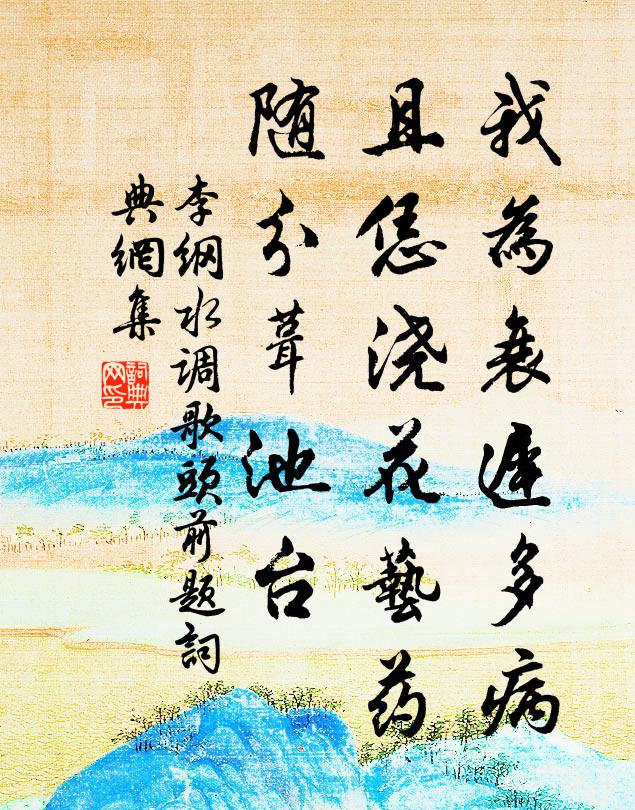 我為衰遲多病
且恁浇花藝药
随分葺池台
李纲水调歌頭前题詞
典網集
詞典网印